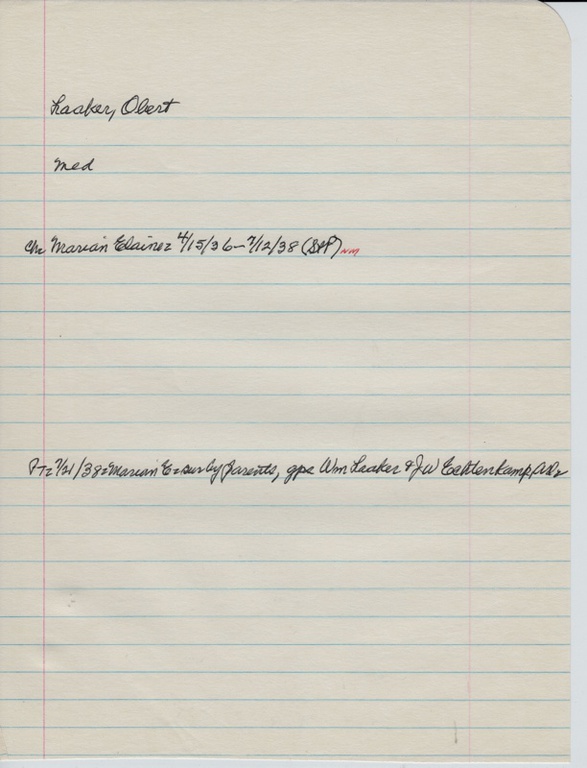 Laaker, Obert
Med
Ch= Marian Elaine= 4/15/36-7/12/38 (StP) NM
PT= 7/21/38= Marian E= sur by parents, gps Wm Laaker & JW Echtenkamp,